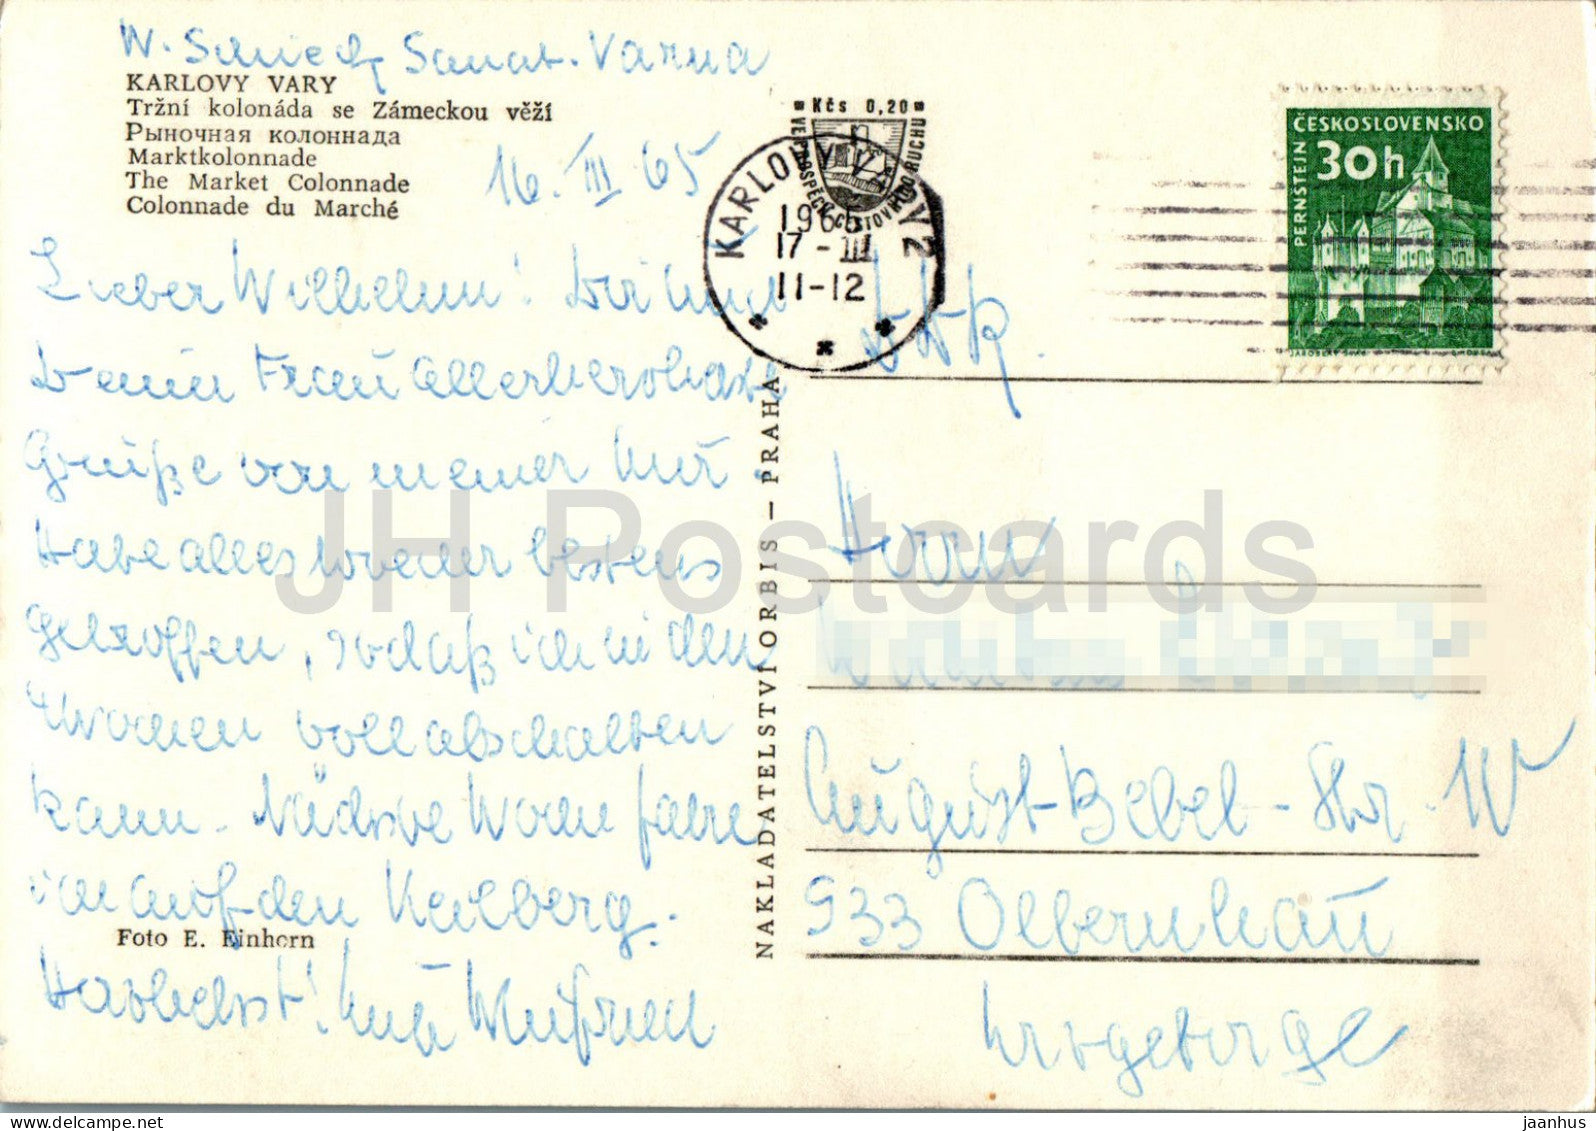 W. Schieck, Sanat. Varna
KARLOVY VARY
Tržní kolonáda se Zámeckou věží
Рыночная колоннада
Marktkolonnade
The Market Colonnade
Colonnade du Marché
16. III 65
Lieber Wilhelm! Dir und
Deiner Frau allerherzlichste
Grüße von meiner Kur.
Habe alles wieder bestens
getroffen, sodaß ich in den
Wochen voll abschalten
kann. Nächste Woche fahre
ich auf den Keilberg.
Herzlichst!
Foto E. Einhorn
NAKLADATELSTVÍ ORBIS — PRAHA
Kčs 0,20
KARLOVY VARY 2
1965
17 - III
11-12
ČESKOSLOVENSKO
30h
PERNŠTEJN
DDR.
Herrn
August-Bebel-Str. 
933 Olbernhau
Erzgebirge
JH Postcards
jaanhus © delcampe.net